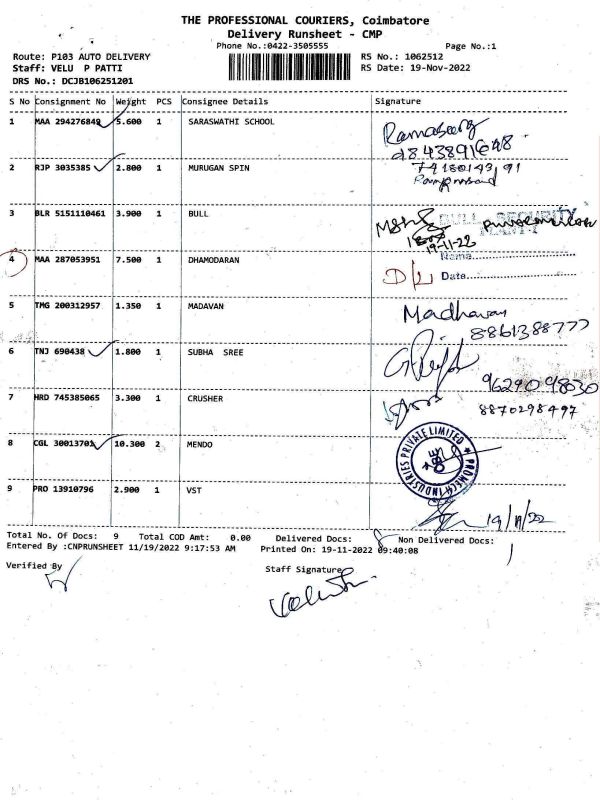 THE PROFESSIONAL COURIERS, Coimbatore
Delivery Runsheet - CMP
Phone No.:0422-3505555 Page No.:1
Route: P103 AUTO DELIVERY RS No.: 1062512
Staff: VELU P PATTI RS Date: 19-Nov-2022
DRS No.: DCJB106251201
S No Consignment No Weight PCS Consignee Details Signature
1 MAA 294276849 5.600 1 SARASWATHI SCHOOL
2 RJP 3035385 2.800 1 MURUGAN SPIN
3 BLR 5151110461 3.900 1 BULL
BULL SECURITY
PLANT-I
19-11-22
Name
4 MAA 287053951 7.500 1 DHAMODARAN D/L Date
5 TMG 200312957 1.350 1 MADAVAN Madhavan
8861388777
6 TNJ 690438 1.800 1 SUBHA SREE
9629098030
7 HRD 745385065 3.300 1 CRUSHER 8870298497
8 CGL 30013701 10.300 2 MENDO
PROMECH INDUSTRIES PRIVATE LIMITED
9 PRO 13910796 2.900 1 VST
19/11/22
Total No. Of Docs: 9 Total COD Amt: 0.00 Delivered Docs: 8 Non Delivered Docs: 1
Entered By :CNPRUNSHEET 11/19/2022 9:17:53 AM Printed On: 19-11-2022 09:40:08
Verified By Staff Signature